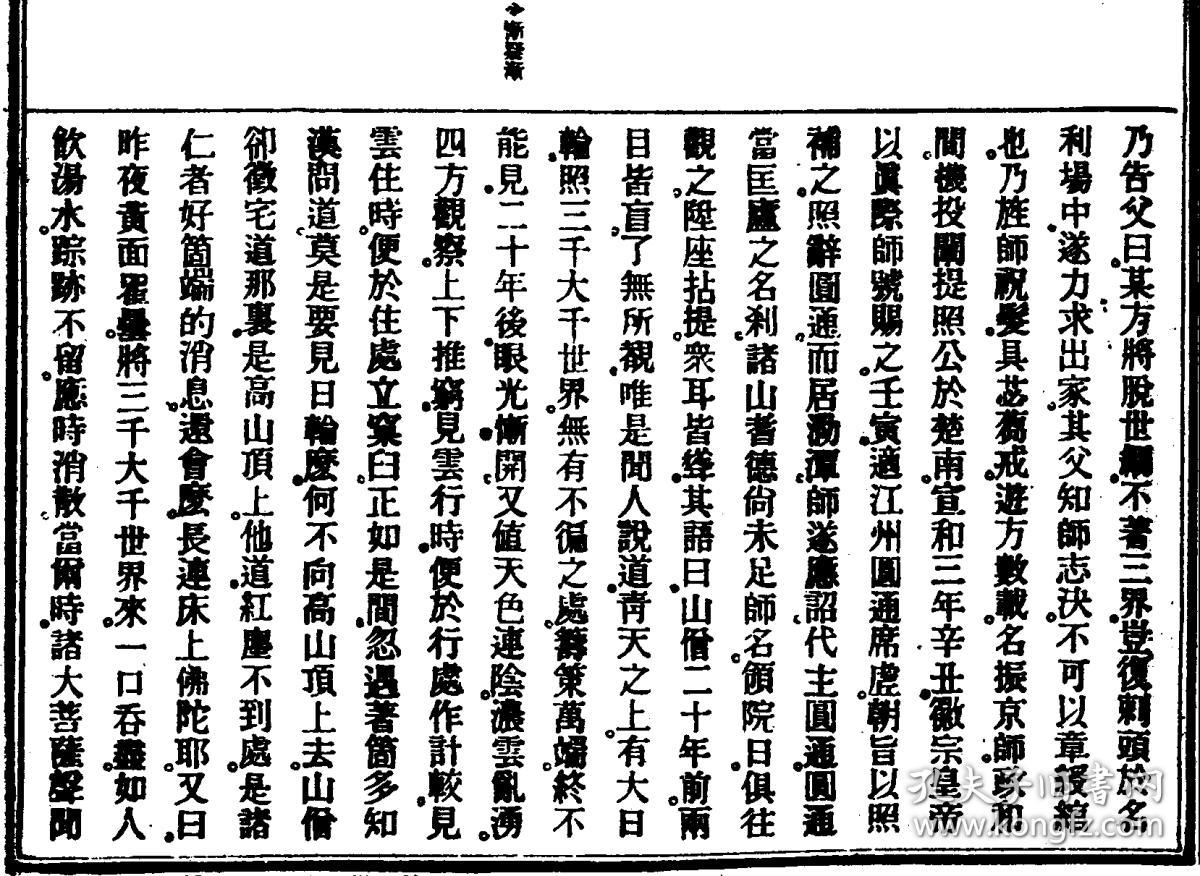 𣺌疑漸
乃告父曰某方將脫世網不著三界豈復剌頭於名
利場中遂力求出家其父知師志決不可以章綬綰
也乃旌師祝髮具苾蒭戒遊方數載名振京師政和
間機投闡提照公於楚南宣和三年辛丑徽宗皇帝
以眞際師號賜之壬寅適江州圓通席虛朝旨以照
補之照辭圓通而居泐潭師遂應詔代主圓通圓通
當匡廬之名剎諸山耆德尚未足師名領院日俱往
觀之陞座拈提衆耳皆聳其語曰山僧二十年前兩
目皆盲了無所覩唯是聞人說道靑天之上有大日
輪照三千大千世界無有不徧之處籌策萬端終不
能見二十年後眼光慚開又値天色連陰濃雲亂湧
四方觀察上下推窮見雲行時便於行處作計較見
雲住時便於住處立窠臼正如是間忽遇著箇多知
漢問道莫是要見日輪麼何不向高山頂上去山僧
卻徵宅道那裏是高山頂上他道紅塵不到處是諸
仁者好箇端的消息還會麼長連床上佛陀耶又曰
昨夜黃面瞿曇將三千大千世界來一口吞盡如人
飲湯水踪跡不留應時消散當爾時諸大菩薩聲聞
孔夫子旧书网
www.kongfz.com